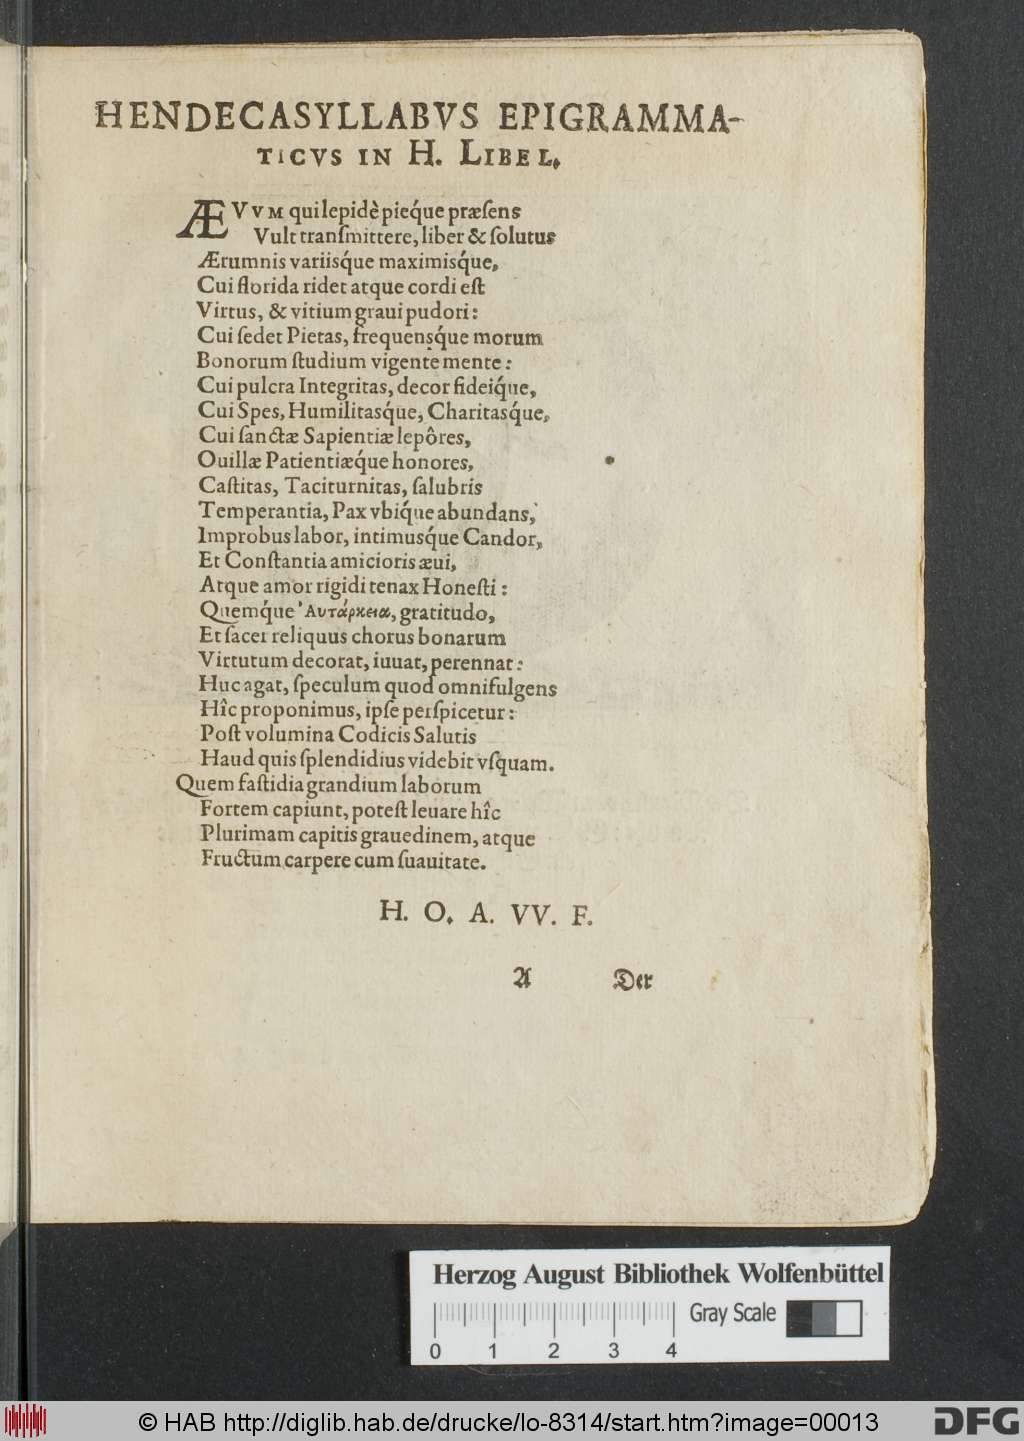 HENDECASYLLABVS EPIGRAMMA-
TICVS IN H. LIBEL.
ÆVVM qui lepidè pieq́ue præſens
Vult tranſmittere, liber & ſolutus
Ærumnis variisq́ue maximisq́ue,
Cui florida ridet atque cordi eſt
Virtus, & vitium graui pudori:
Cui ſedet Pietas, frequensq́ue morum
Bonorum ſtudium vigente mente:
Cui pulcra Integritas, decor fideiq́ue,
Cui Spes, Humilitasq́ue, Charitasq́ue,
Cui ſanctæ Sapientiæ lepôres,
Ouillæ Patientiæq́ue honores,
Caſtitas, Taciturnitas, ſalubris
Temperantia, Pax vbiq́ue abundans,
Improbus labor, intimusq́ue Candor,
Et Conſtantia amicioris æui,
Atque amor rigidi tenax Honeſti:
Quemq́ue Ἀυτάρκεια, gratitudo,
Et ſacer reliquus chorus bonarum
Virtutum decorat, iuuat, perennat:
Huc agat, ſpeculum quod omnifulgens
Hîc proponimus, ipſe perſpicetur:
Poſt volumina Codicis Salutis
Haud quis ſplendidius videbit vſquam.
Quem faſtidia grandium laborum
Fortem capiunt, poteſt leuare hîc
Plurimam capitis grauedinem, atque
Fructum carpere cum ſuauitate.
H. O. A. VV. F.
A Der
Herzog August Bibliothek Wolfenbüttel
Gray Scale
0 1 2 3 4
© HAB http://diglib.hab.de/drucke/lo-8314/start.htm?image=00013
DFG